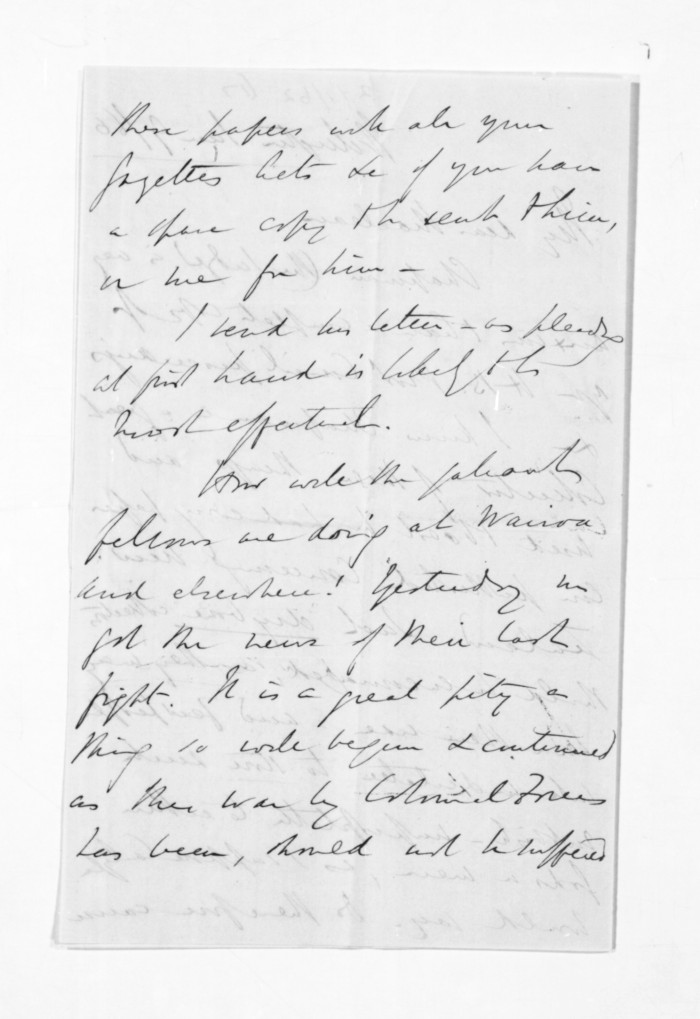 these papers with all your
Gazettes Acts &c if you have
a spare copy to send them,
or me for him -
I send his letter - as pleading
at first hand is likely to be
most effectual.
How well the gallant
fellows are doing at Wairoa
and elsewhere! Yesterday we
got the news of their last
fight. It is a great pity a
thing so well begun & continued
as this war by Colonial Forces
has been, should not be suffered